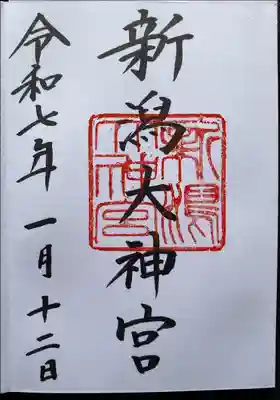 新潟大神宮
令和七年一月十二日